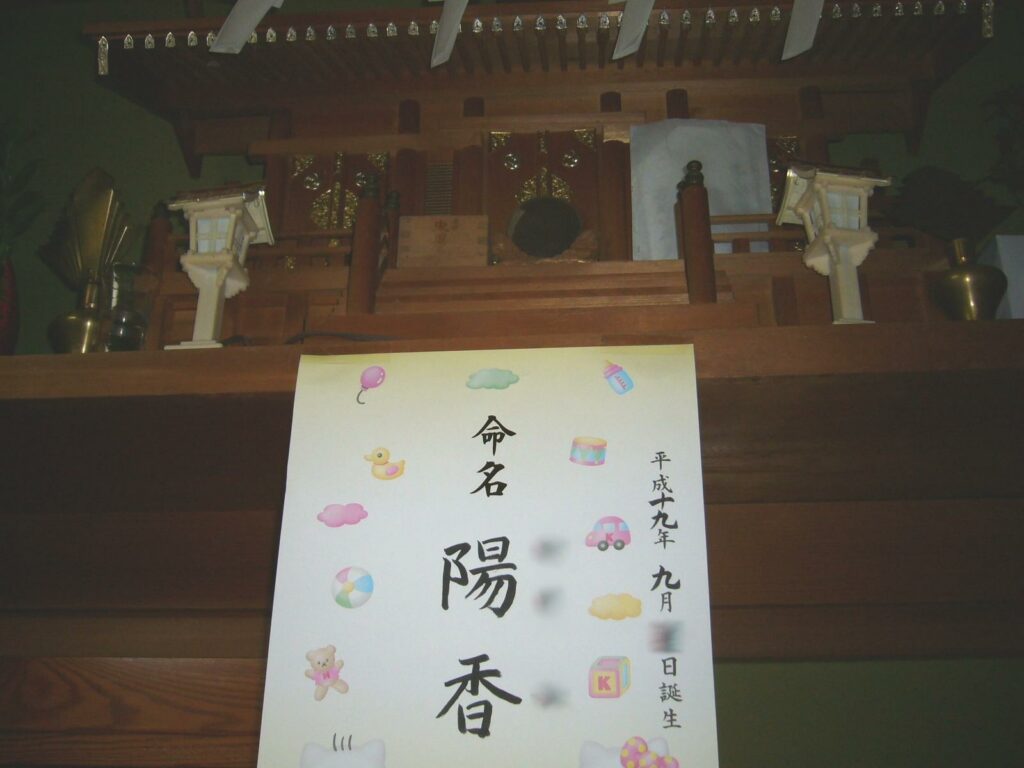 平成十九年 九月 日誕生
命名 陽香
K
K